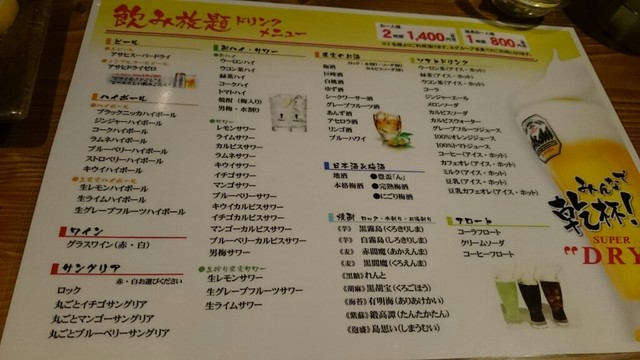 飲み放題ドリンクメニュー
お一人様
2時間1,400円
1時間800円
ビール
アサヒスーパードライ
アサヒドライゼロ
ハイボール
ブラックニッカハイボール
ジンジャーハイボール
コークハイボール
ラムネハイボール
ブルーベリーハイボール
ストロベリーハイボール
キウイハイボール
生レモンハイボール
生ライムハイボール
生グレープフルーツハイボール
ワイン
グラスワイン(赤・白)
サングリア
赤・白お選びください
ロック
丸ごとイチゴサングリア
丸ごとマンゴーサングリア
丸ごとブルーベリーサングリア
酎ハイ・サワー
ウーロンハイ
ウコン茶ハイ
緑茶ハイ
コークハイ
トマトハイ
焼酎(梅入り)
男梅・水割り
レモンサワー
ライムサワー
カルピスサワー
ラムネサワー
キウイサワー
イチゴサワー
マンゴサワー
ブルーベリーサワー
キウイカルピスサワー
イチゴカルピスサワー
マンゴーカルピスサワー
ブルーベリーカルピスサワー
男梅サワー
生レモンサワー
生グレープフルーツサワー
生ライムサワー
果実のお酒
梅酒
巨峰酒
白桃酒
ゆず酒
シークワーサー酒
グレープフルーツ酒
あんず酒
アセロラ酒
リンゴ酒
ブルーハワイ
日本酒&梅酒
地酒
●豊盃「ん」
本格梅酒
●完熟梅酒
●にごり梅酒
焼酎 ロック・水割り・お湯割り
《芋》 黒霧島(くろきりしま)
《芋》 白霧島(しろきりしま)
《麦》 赤閻魔(あかえんま)
《麦》 黒閻魔(くろえんま)
《黒糖》 れんと
《胡麻》 黒胡宝(くろごほう)
《海苔》 有明海(ありあけかい)
《紫蘇》 鍛高譚(たんたかたん)
《泡盛》 島思い(しまうむい)
ソフトドリンク
ウーロン茶(アイス・ホット)
緑茶(アイス・ホット)
ウコン茶(アイス・ホット)
コーラ
ジンジャーエール
メロンソーダ
カルピスソーダ
カルピスウォーター
グレープフルーツジュース
100%オレンジジュース
100%トマトジュース
コーヒー(アイス・ホット)
カフェオレ(アイス・ホット)
ミルク(アイス・ホット)
豆乳(アイス・ホット)
豆乳カフェオレ(アイス・ホット)
フロート
コーラフロート
クリームソーダ
コーヒーフロート
Asahi
みんなで
乾杯!
SUPER
"DRY